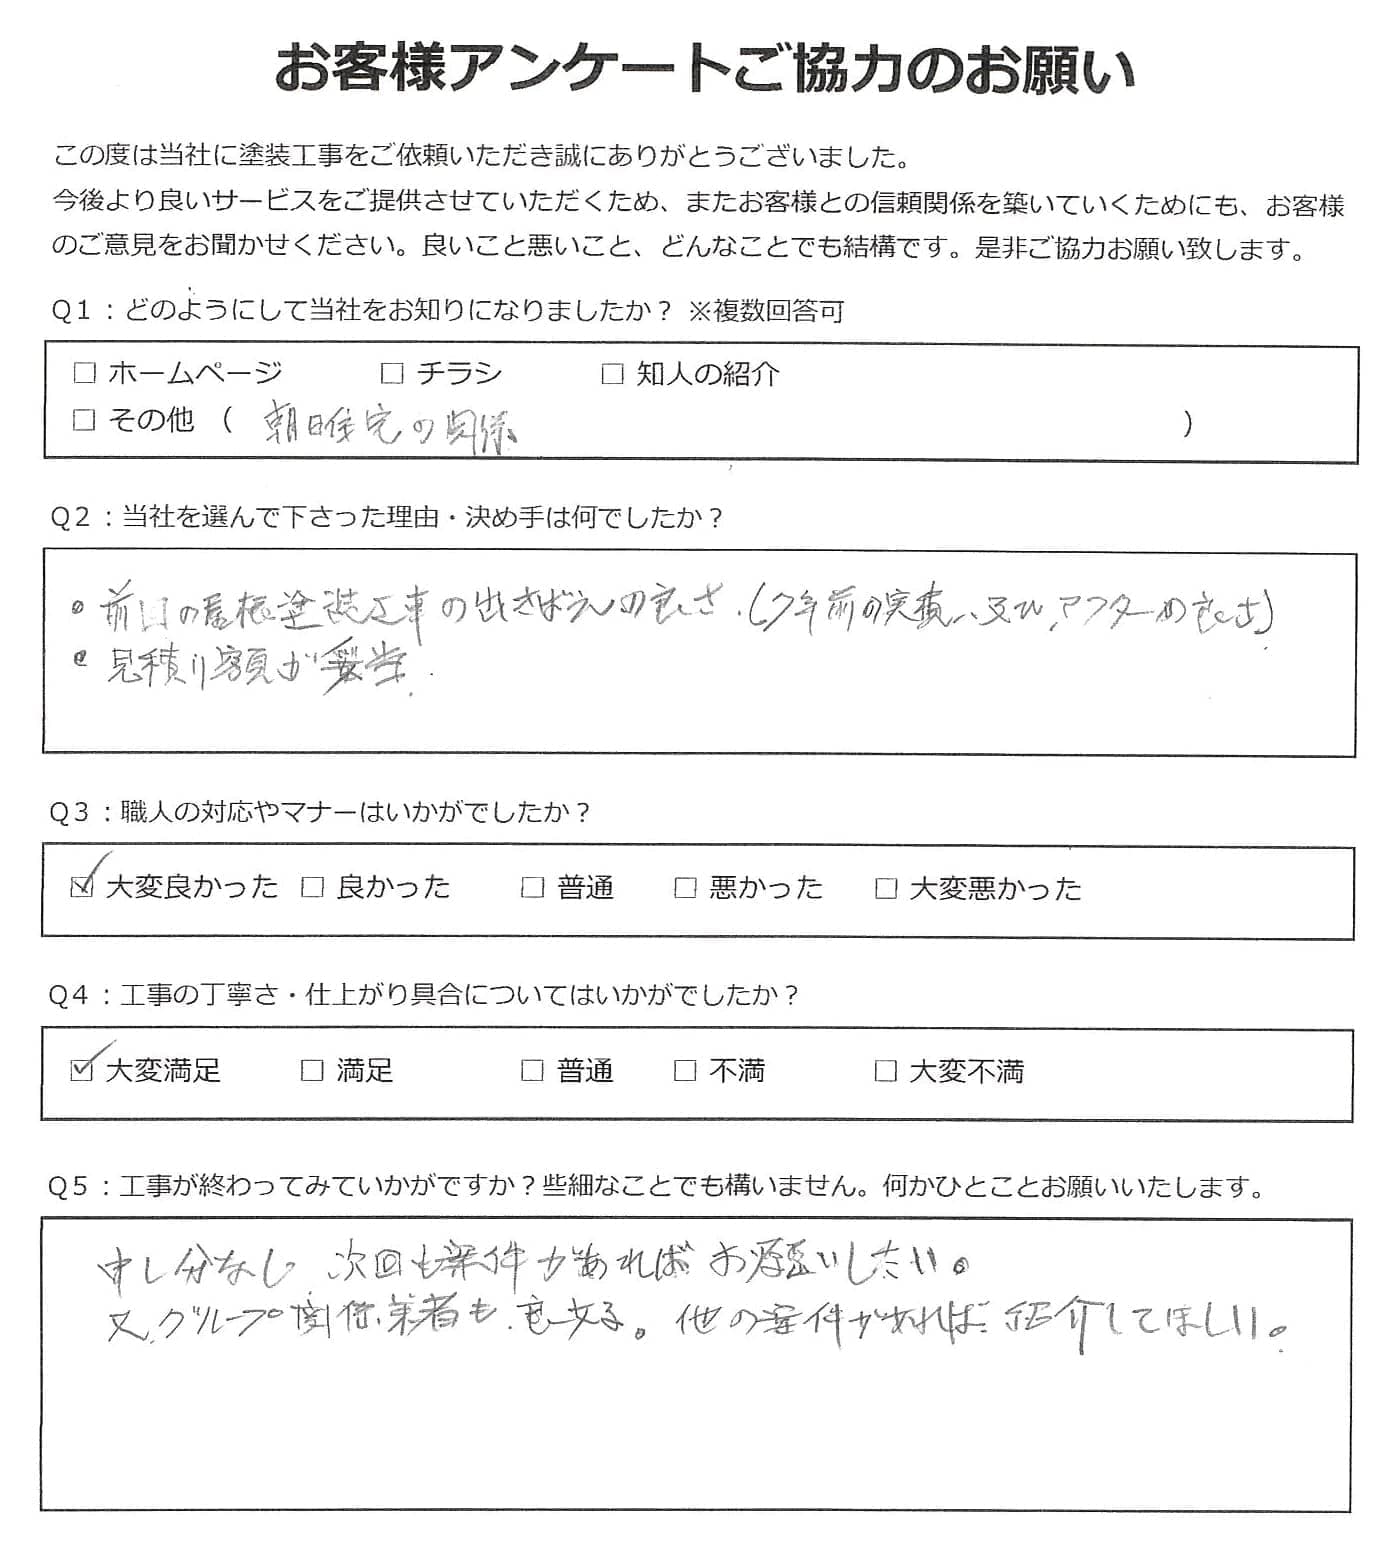 お客様アンケートご協力のお願い
この度は当社に塗装工事をご依頼いただき誠にありがとうございました。
今後より良いサービスをご提供させていただくため、またお客様との信頼関係を築いていくためにも、お客様
のご意見をお聞かせください。良いこと悪いこと、どんなことでも結構です。是非ご協力お願い致します。
Q1：どのようにして当社をお知りになりましたか？ ※複数回答可
□ ホームページ □ チラシ □ 知人の紹介
□ その他 （ 朝日住宅の関係 ）
Q2：当社を選んで下さった理由・決め手は何でしたか？
• 前回の屋根塗装工事の出きばえの良さ.(7年前の実積、又は、アフターの良さ)
• 見積り額が妥当.
Q3：職人の対応やマナーはいかがでしたか？
☑ 大変良かった □ 良かった □ 普通 □ 悪かった □ 大変悪かった
Q4：工事の丁寧さ・仕上がり具合についてはいかがでしたか？
☑ 大変満足 □ 満足 □ 普通 □ 不満 □ 大変不満
Q5：工事が終わってみていかがですか？些細なことでも構いません。何かひとことお願いいたします。
申し分なし 次回も案件があればお願いしたい。
又、グループ関係業者も 。他の案件があれば紹介してほしい。